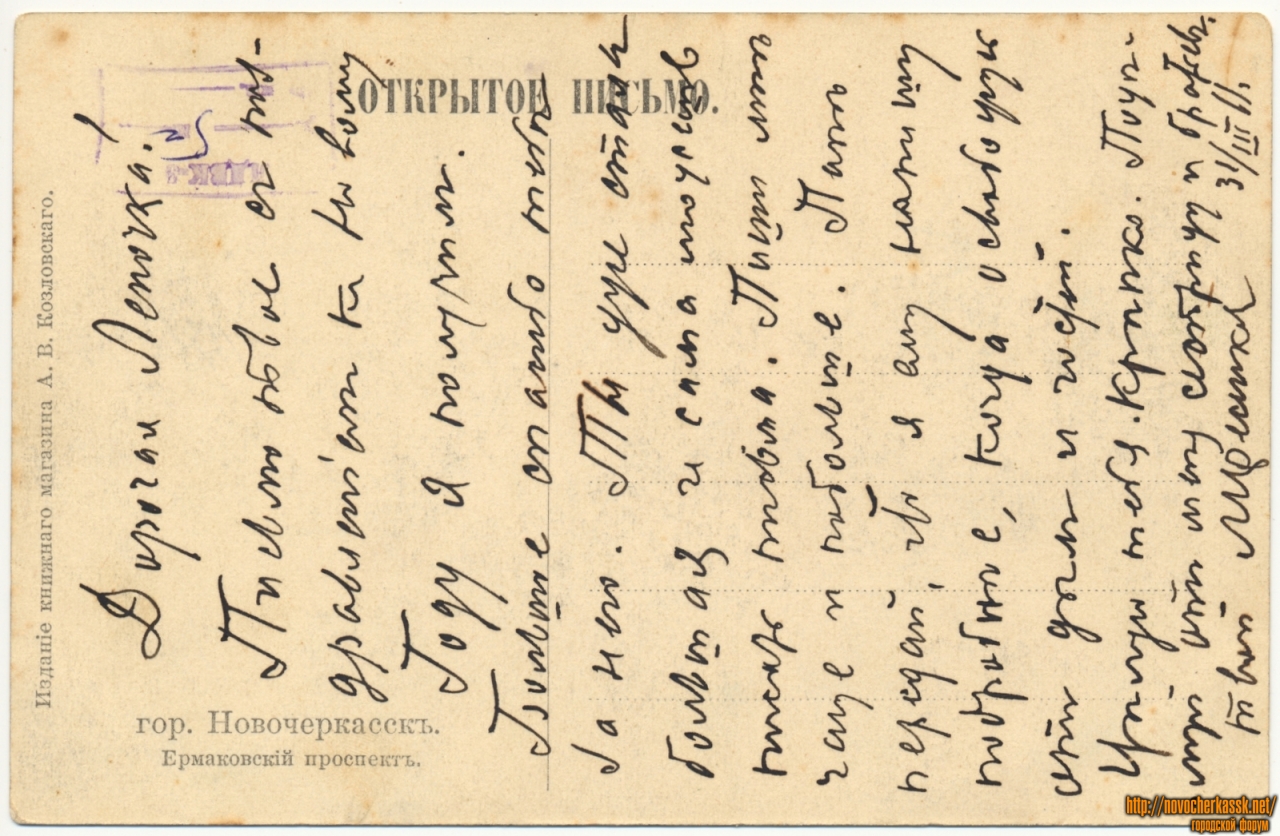 ОТКРЫТОЕ ПИСЬМО.
Изданіе книжнаго магазина А. В. Козловскаго.
гор. Новочеркасскъ.
Ермаковскій проспектъ.
Дорогая Леночка!
Письмо твое съ поз-
дравленіем къ Новому
Году я получил.
Большое спасибо тебѣ
за него. Ты уже стала
большая и сама можешь
писать письма. Пиши мнѣ
чаще и побольше. Папѣ
передай, что я ему напишу
подробнѣе, когда освобожу
Цѣлую тебя крѣпко. Поцѣ-
луй маму сестрицу и братьев.
твой
31/III 11.
http://novocherkassk.net/
городской форум